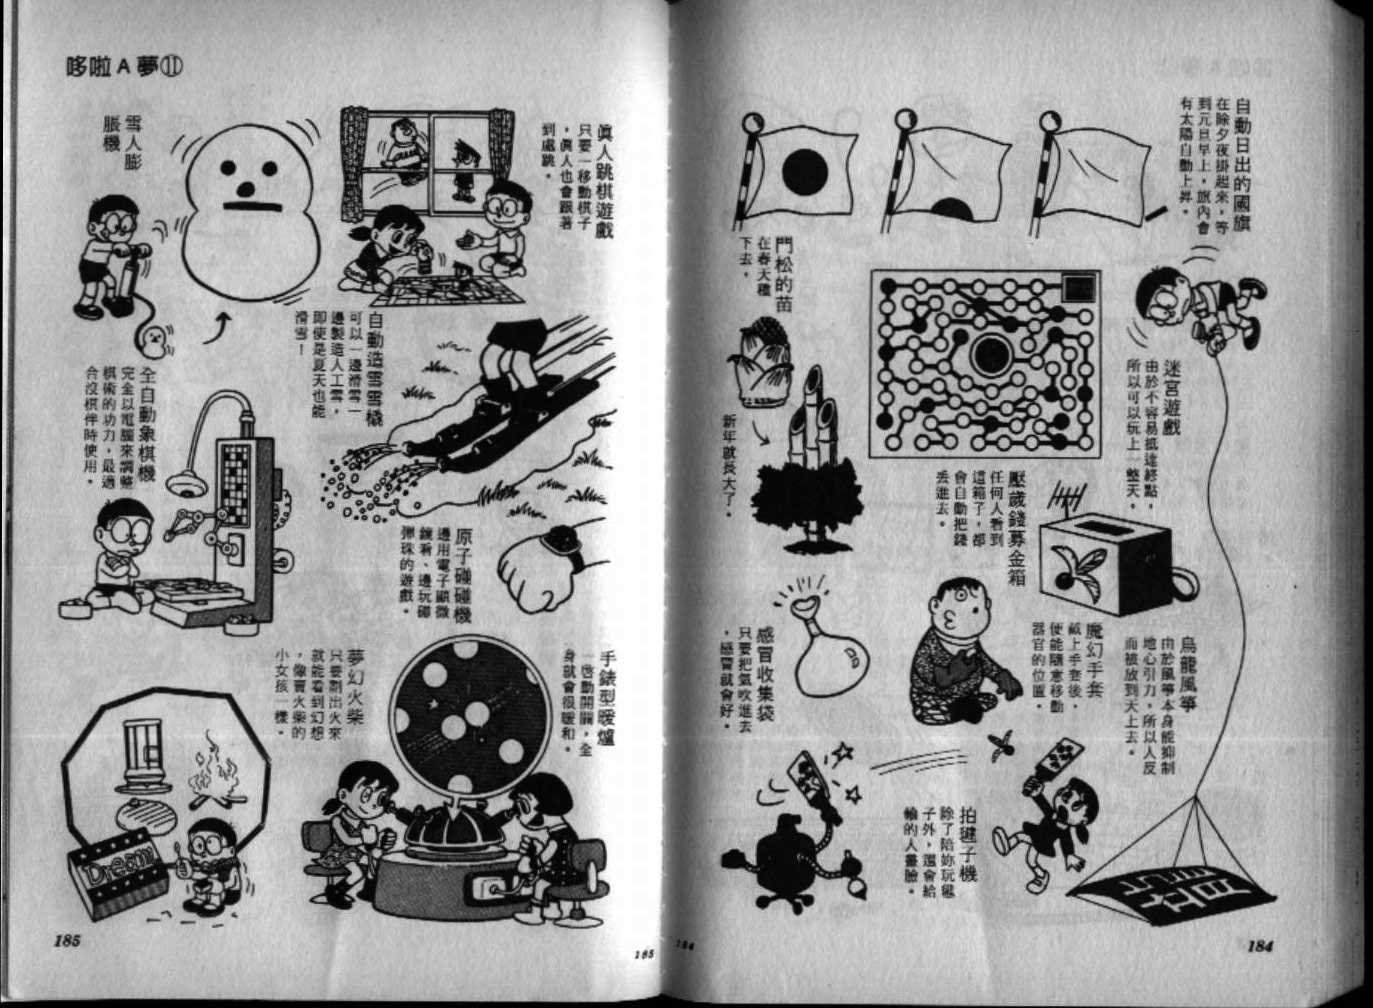 自動日出的國旗
在除夕夜掛起來，等
到元旦早上，旗內會
有太陽自動上昇。
門松的苗
在春天種
下去，
新年就長大了。
迷宮遊戲
由於不容易抵達終點，
所以可以玩上一整天。
壓歲錢募金箱
任何人看到
這箱子，都
會自動把錢
丟進去。
烏龍風箏
由於風箏本身能抑制
地心引力，所以人反
而被放到天上去。
魔幻手套
戴上手套後，
便能隨意移動
器官的位置。
感冒收集袋
只要把氣吹進去
，感冒就會好。
拍毽子機
除了陪妳玩毽
子外，還會給
輸的人畫臉。
184
184
哆啦A夢⑪
眞人跳棋遊戲
只要一移動棋子
，眞人也會跟著
到處跳。
雪人膨
脹機
自動造雪雪橇
可以一邊滑雪一
邊製造人工雪，
即使是夏天也能
滑雪！
全自動象棋機
完全以電腦來調整
棋術的功力，最適
合沒棋伴時使用。
原子碰碰機
邊用電子顯微
鏡看、邊玩碰
彈珠的遊戲。
手錶型暖爐
一啓動開關，全
身就會很暖和。
夢幻火柴
只要劃出火來
就能看到幻想
，像賣火柴的
小女孩一樣。
Dream
185
185